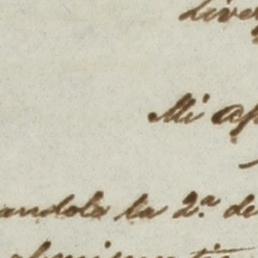 Live
Mi ap
andola la 2.ª de